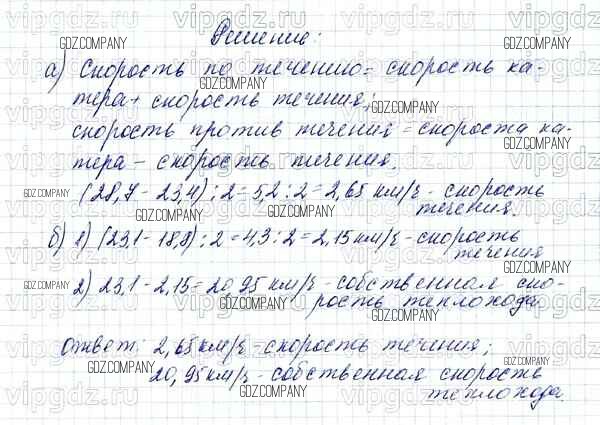 Решение:
а) Скорость по течению = скорость ка-
тера + скорость течения;
скорость против течения = скорость ка-
тера – скорость течения.
(28,7 – 23,4) : 2 = 5,2 : 2 = 2,65 км/ч – скорость
течения.
б) 1) (23,1 – 18,8) : 2 = 4,3 : 2 = 2,15 км/ч – скорость
течения
2) 23,1 – 2,15 = 20,95 км/ч – собственная ско-
рость теплохода.
Ответ: 2,65 км/ч – скорость течения;
20,95 км/ч – собственная скорость
теплохода.
vipgdz.ru
GDZ.COMPANY